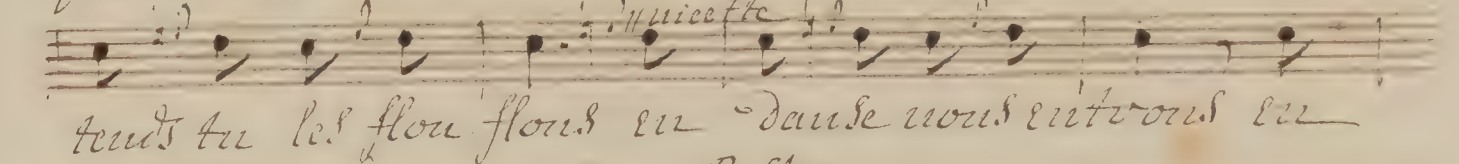 musette
tends tu les flon flons en danse nous entrons en